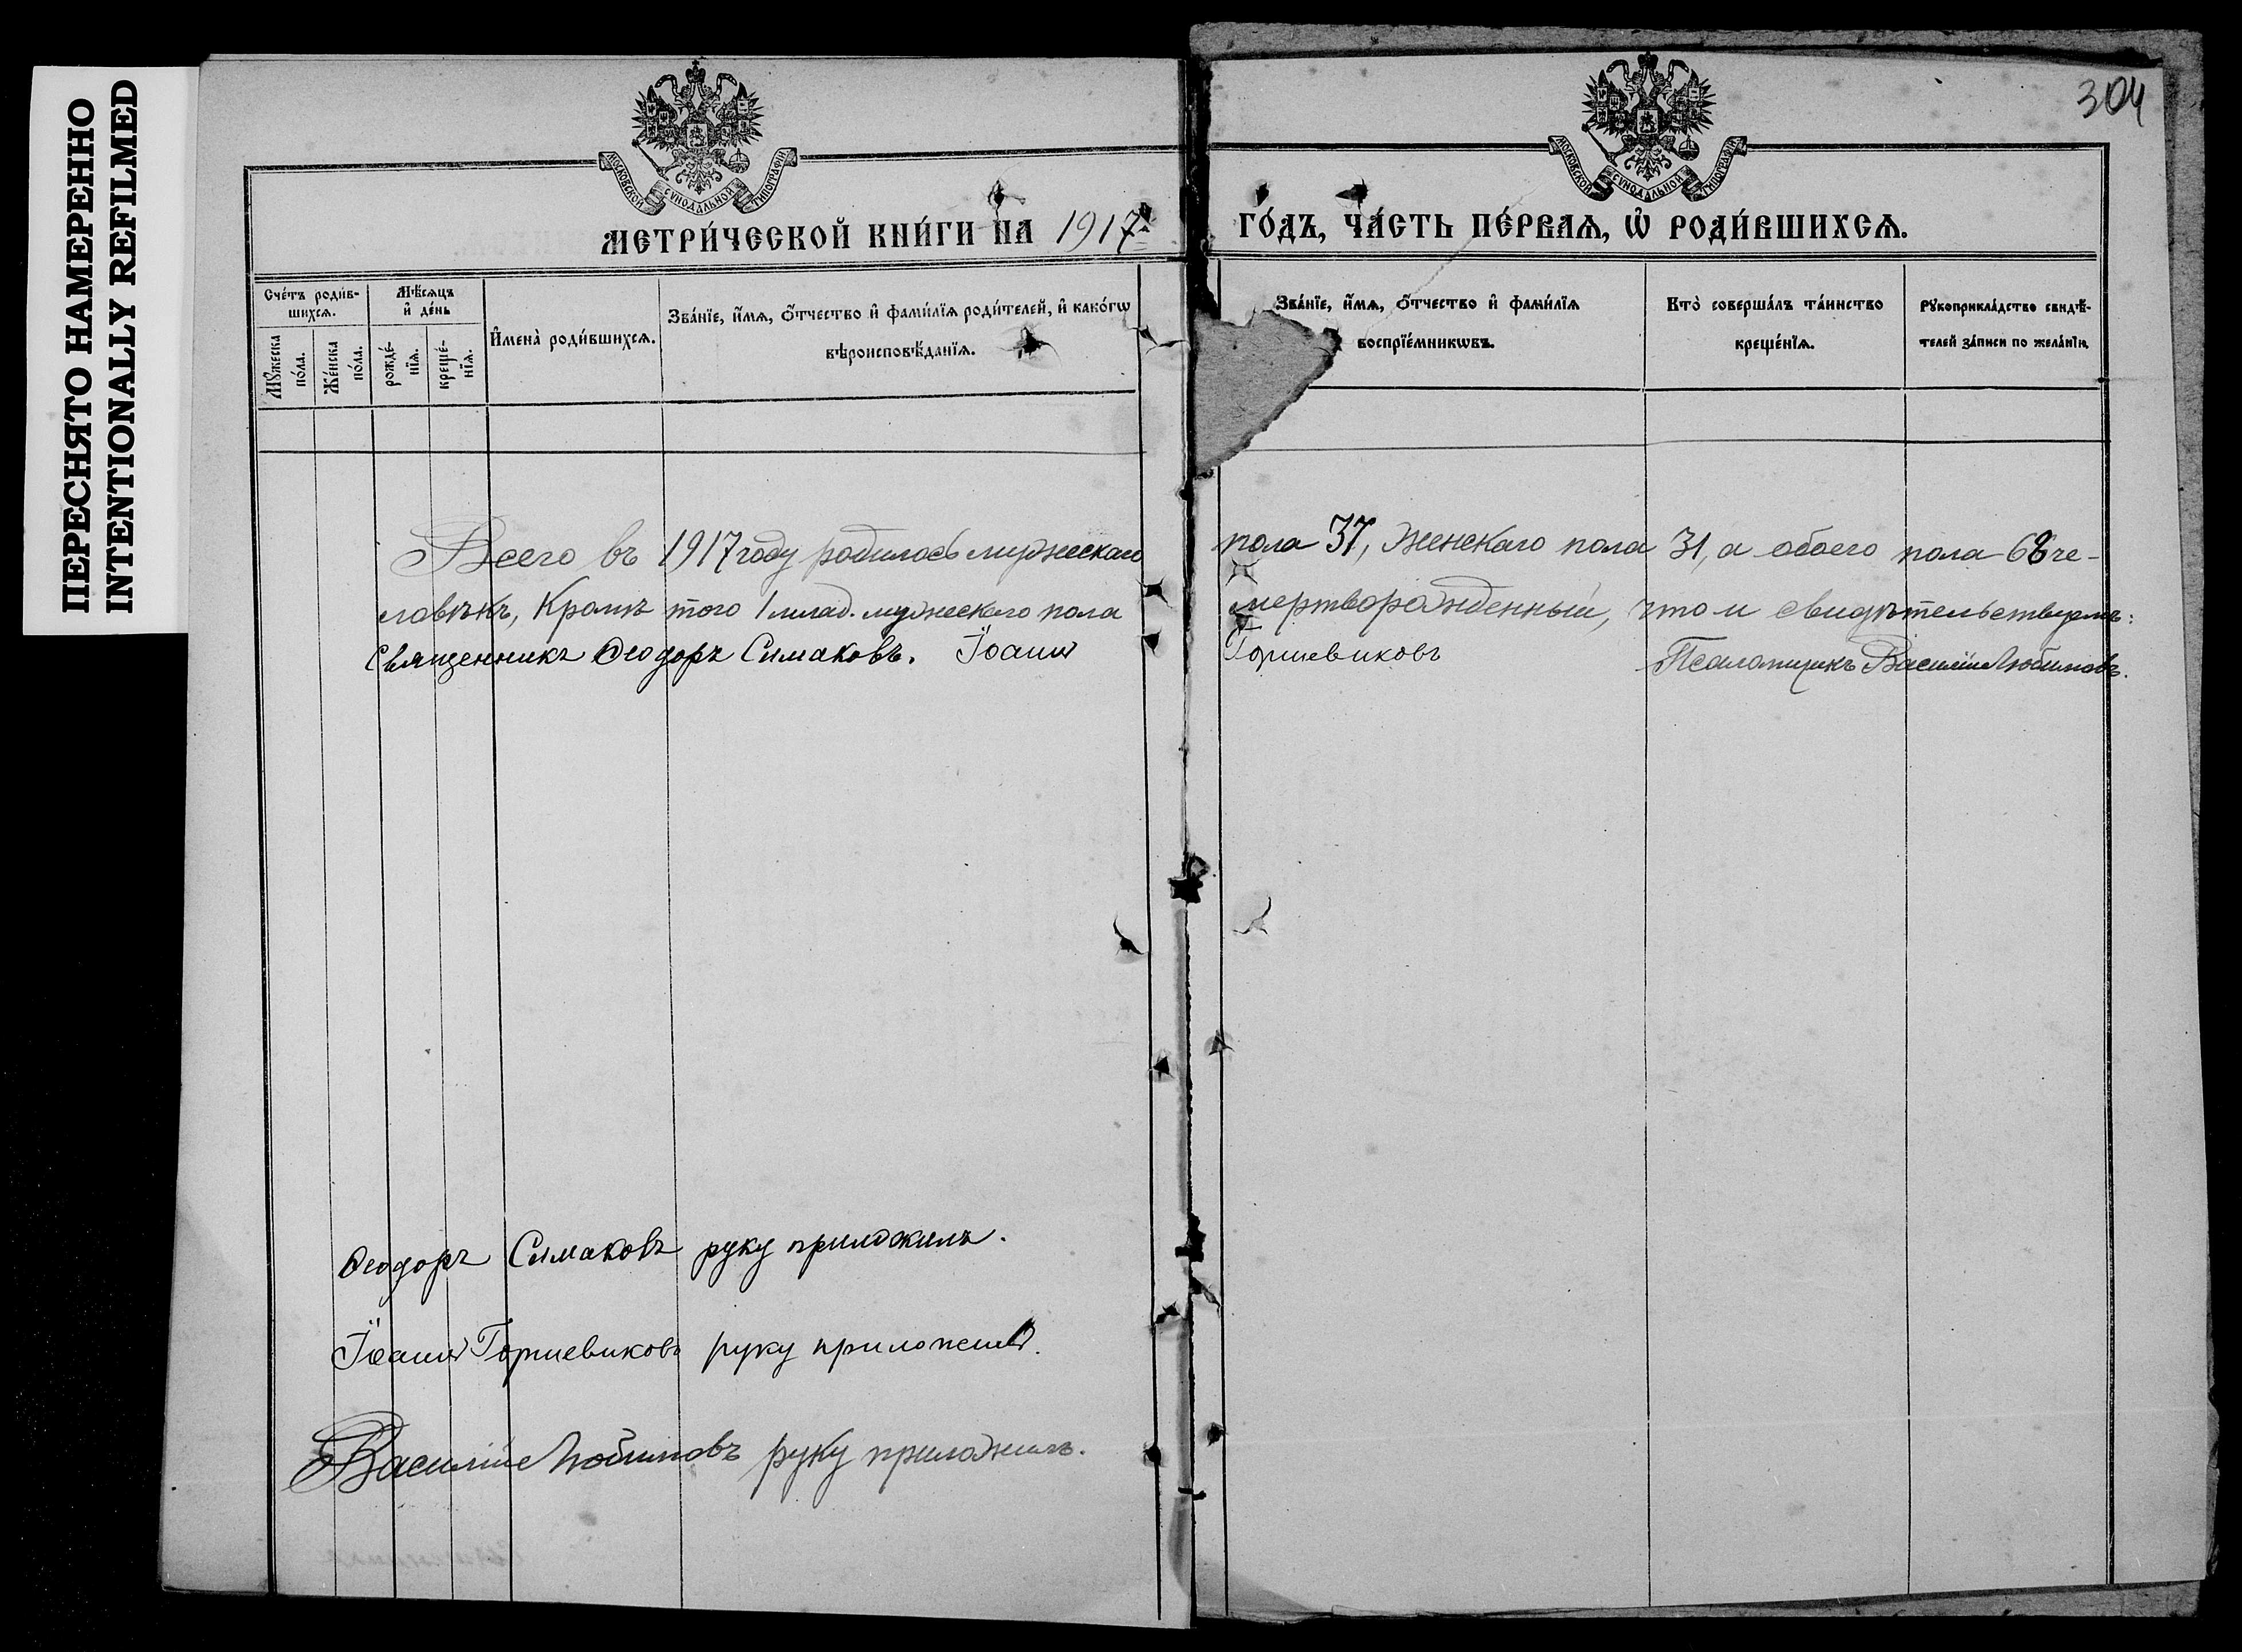 ПЕРЕСНЯТО НАМЕРЕННО
INTENTIONALLY REFILMED
304
МОСКОВСКОЙ СѴНОДАЛЬНОЙ ТИПОГРАФІИ
МОСКОВСКОЙ СѴНОДАЛЬНОЙ ТИПОГРАФІИ
МЕТРИ́ЧЕСКОЙ КНИ́ГИ НА 1917
ГО́ДЪ, ЧА́СТЬ ПЕ́РВАЯ, Ѡ҆ РОДИ́ВШИХСЯ.
Сче́тъ роди́в-
шихся.
Мꙋ́жеска
по́ла.
Же́нска
по́ла.
Мѣ́сяцъ
и҆ де́нь
рожде́-
нїя.
креще́-
нїя.
И҆мена̀ роди́вшихся.
Зва́нїе, и҆́мя, ѻ҆́тчество и҆ фами́лїя роди́телей, и҆ како́гѡ
вѣроисповѣ́данїя.
Зва́нїе, и҆́мя, ѻ҆́тчество и҆ фами́лїя
воспрїе́мникѡвъ.
Кто̀ соверша́лъ та́инство
креще́нїя.
Рꙋкоприкла́дство свидѣ́-
телей за́писи по жела́нїю.
Всего въ 1917 году родилось мужескаго пола 37, женскаго пола 31, а обоего пола 68 че-
ловѣкъ, Кромѣ того 1 млад. мужескаго пола мертворожденный, что и свидѣтельствуемъ:
Священникъ Ѳеодоръ Симаковъ. Іоаннъ Псаломщикъ Василій Любимовъ.
Ѳеодоръ Симаковъ руку приложилъ.
Іоаннъ руку приложилъ.
Василій Любимовъ руку приложилъ.